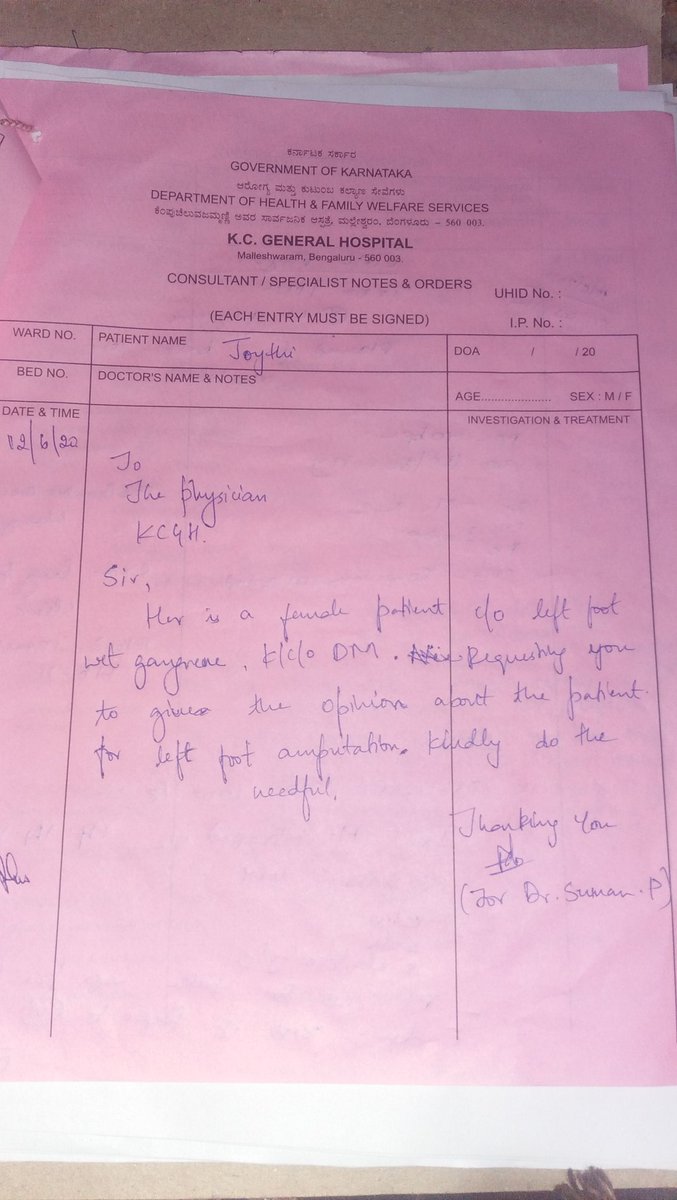 ಕರ್ನಾಟಕ ಸರ್ಕಾರ
GOVERNMENT OF KARNATAKA
ಆರೋಗ್ಯ ಮತ್ತು ಕುಟುಂಬ ಕಲ್ಯಾಣ ಸೇವೆಗಳು
DEPARTMENT OF HEALTH & FAMILY WELFARE SERVICES
ಕೆಂಪುಚೆಲುವಜಮ್ಮಣ್ಣಿ ಅವರ ಸಾರ್ವಜನಿಕ ಆಸ್ಪತ್ರೆ, ಮಲ್ಲೇಶ್ವರಂ, ಬೆಂಗಳೂರು - 560 003.
K.C. GENERAL HOSPITAL
Malleshwaram, Bengaluru - 560 003.
CONSULTANT / SPECIALIST NOTES & ORDERS
UHID No. :
(EACH ENTRY MUST BE SIGNED)
I.P. No. :
WARD NO. PATIENT NAME Joythi DOA / / 20
BED NO. DOCTOR'S NAME & NOTES AGE..................... SEX : M / F
DATE & TIME INVESTIGATION & TREATMENT
12/6/20
To
The physician
KCGH.
Sir,
Her is a female patient c/o left foot
wet gangrene, K/c/o DM. Requesting you
to give the opinion about the patient
for left foot amputation. Kindly do the
needful.
Thanking You
(For Dr. Suman. P)